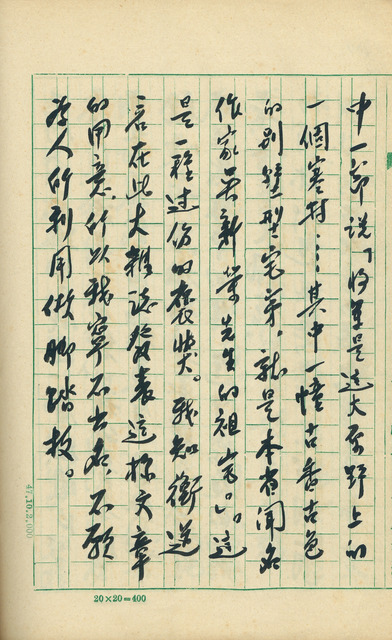 中一節說「將軍是這大原野上的
一個寒村……其中一幢古香古色
的別墅型宅第，就是本省聞名
作家吳新榮先生的祖宅」。這
是一種過份的褒獎。我知
言在此大雜誌發表這樣文章
的用意，所以我寧不出名，不願
為人所利用做腳踏板。
20×20=400